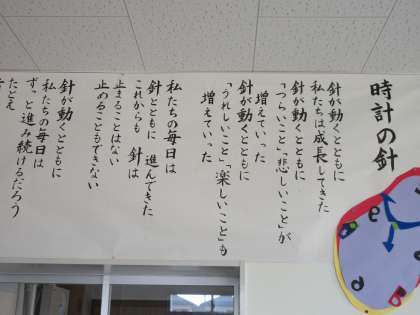 時計の針
針が動くとともに
私たちは成長してきた
針が動くとともに
「つらいこと」「悲しいこと」が
増えていった
針が動くとともに
「うれしいこと」「楽しいこと」も
増えていった
私たちの毎日は
針とともに 進んできた
これからも 針は
止まることはない
止めることもできない
針が動くとともに
私たちの毎日は
ずっと進み続けるだろう
たとえ